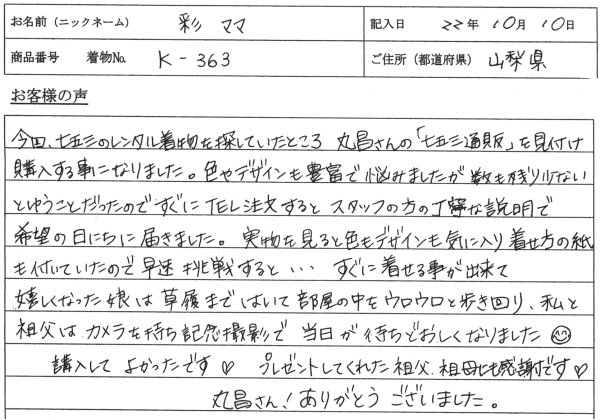 お名前（ニックネーム） 彩ママ 記入日 22年 10月 10日
商品番号 着物No. K-363 ご住所（都道府県） 山梨県
お客様の声
今回、七五三のレンタル着物を探していたところ 丸昌さんの「七五三通販」を見付け
購入する事になりました。色やデザインも豊富で悩みましたが 数も残り少ない
とゆうことだったのですぐにTEL注文すると スタッフの方の丁寧な説明で
希望の日にちに届きました。実物を見ると色もデザインも気に入り着せ方の紙
も付いていたので早速 挑戦すると・・・ すぐに着せる事が出来て
嬉しくなった娘は草履まではいて部屋の中をウロウロと歩き回り、私と
祖父はカメラを持ち記念撮影で 当日が待ちどおしくなりました😊
購入して よかったです♡ プレゼントしてくれた祖父、祖母にも感謝です♡
丸昌さん！ありがとう ございました。